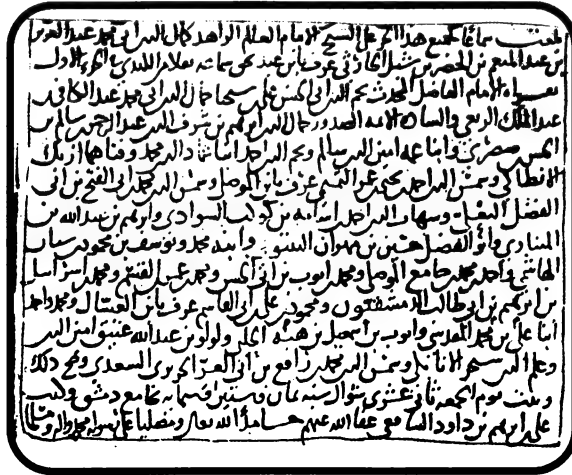 بلغت سماعا لجميع هذا الجزء على الشيخ الامام العالم الزاهد كمال الدين ابي محمد عبد العزيز
بن عبد المنعم بن الخضر بن شبل الحارثي عرف بابن عبد بحق سماعه بالجزء الاول
بقراءة الامام الفاضل المحدث نجم الدين ابي الحسن علي بن شيخنا جمال الدين ابي محمد عبد الكافي بن
عبد الملك الربعي والسادة الائمة الصدور جمال الدين ابرهيم بن شرف الدين عبد الرحمن بن سالم بن
الحسن صصرى وابنا عمه امين الدين سالم ونجم الدين احمد ابنا عماد الدين محمد وفتاهما ازبك
الانطاكي وشمس الدين احمد بن يحيى بن عمر التميمي عرف بابن الموصلي وشمس الدين محمد بن ابي الفتح بن ابي
الفضل وشهاب الدين احمد السوادي وابرهيم بن عبد الله بن
المنادي وابو الفضل حسين بن مهران وابنه محمد ويوسف بن محمود بن
الهاشمي واحمد بن محمد بن جامع الموصلي ومحمد بن ايوب بن ابي الحسن ومحمد بن القيم ومحمد بن اسرائيل
بن ابرهيم بن ابي طالب الدمشقيون ومحمود بن علي بن ابي القاسم عرف بابن الغسال ومحمد واحمد
ابنا علي بن محمد المقدسي وايوب بن اسمعيل بن هبة الله ولولو بن عبد الله عتيق امين الدين
وعلم الدين سنجر وشمس الدين محمد بن رافع بن ابي العز الحريري السعدي وصح ذلك
وثبت يوم الجمعه ثاني عشري شوال سنه ثمان وستين وستمايه بجامع دمشق وكتب
علي بن ابرهيم بن داود الشافعي عفا الله عنهم حامدا الله تعالى ومصليا على رسوله محمد واله ومسلما